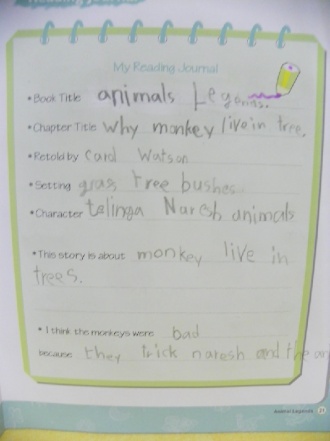 My Reading Journal
• Book Title animals Legends.
• Chapter Title Why monkey live in tree.
• Retold by Carol Watson
• Setting gras tree bushes
• Character telinga Naresh animals
• This story is about monkey live in
trees.
• I think the monkeys were bad
because they trick naresh and the an